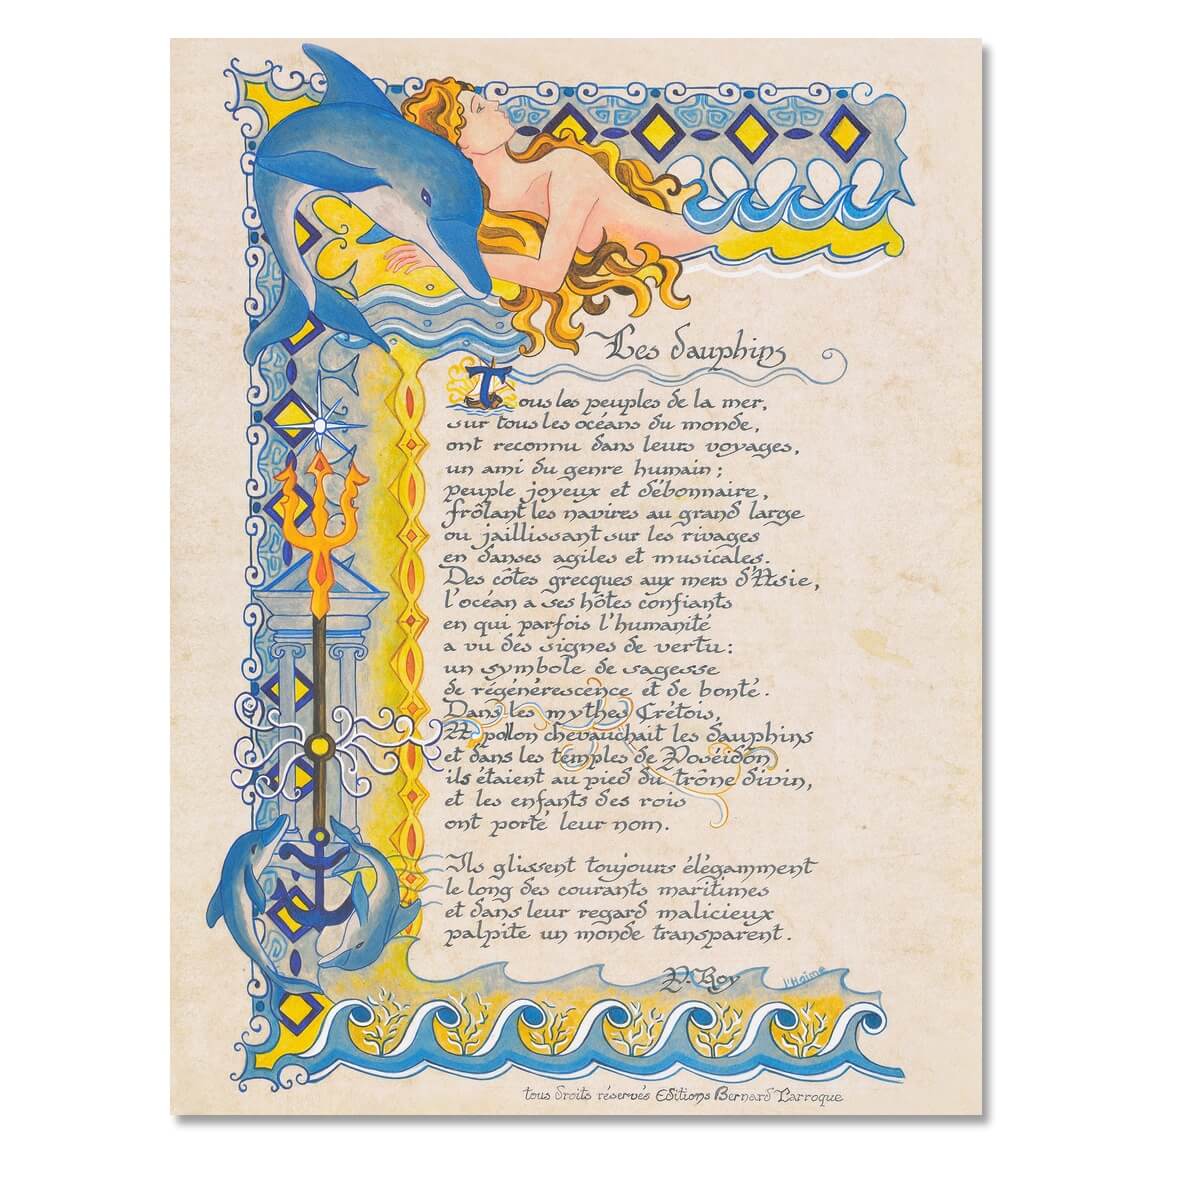 Les dauphins
Tous les peuples de la mer,
sur tous les océans du monde,
ont reconnu dans leurs voyages,
un ami du genre humain ;
peuple joyeux et débonnaire,
frôlant les navires au grand large
ou jaillissant sur les rivages
en danses agiles et musicales.
Des côtes grecques aux mers d'Asie,
l'océan a ses hôtes confiants
en qui parfois l'humanité
a vu des signes de vertu :
un symbole de sagesse
de régénérescence et de bonté.
Dans les mythes Crétois,
Apollon chevauchait les dauphins
et dans les temples de Poséidon
ils étaient au pied du trône divin,
et les enfants des rois
ont porté leur nom.
Ils glissent toujours élégamment
le long des courants maritimes
et dans leur regard malicieux
palpite un monde transparent.
P. Roy
l'Haime
tous droits réservés Editions Bernard Larroque